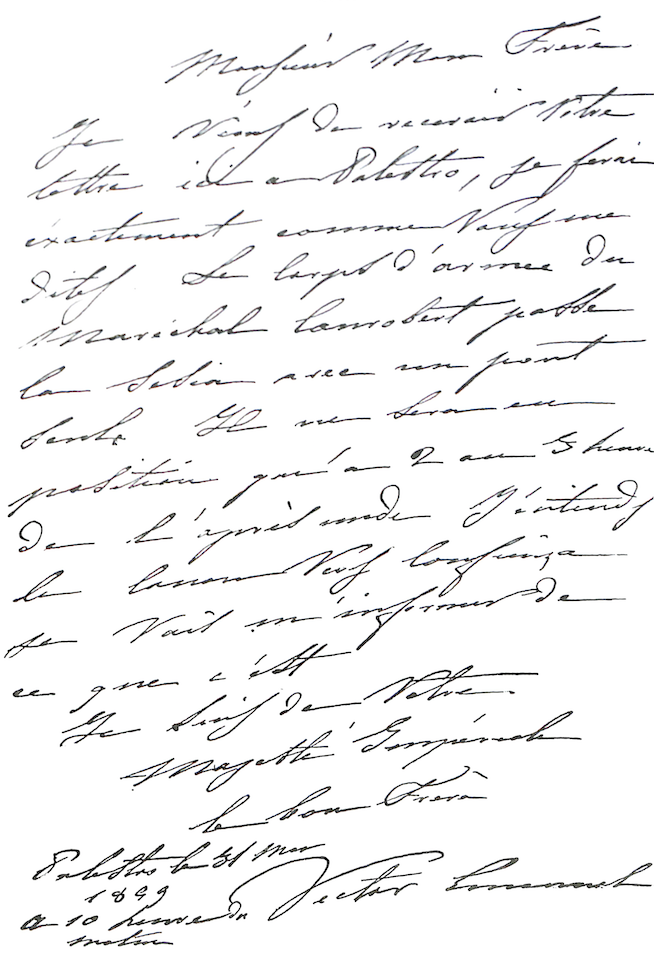 Monsieur Mon Frère
Je Viens de recevoir Votre
lettre ici a Palestro, je ferai
éxactement comme Vous me
dites. Le Corps d'armee du
Maréchal Canrobert passe
la Sesia avec un pont
seul. Il ne sera en
position qu'a 2 au 3 heure
de l'après mide J'éntends
le canon Vers Confiença
je Vais m'informer de
ce que c'est
Je suis de Votre
Majesté Impériale
le bon Frère
Palestro le 31 Mai
1859
a 10 heure du Victor Emanuel
matin